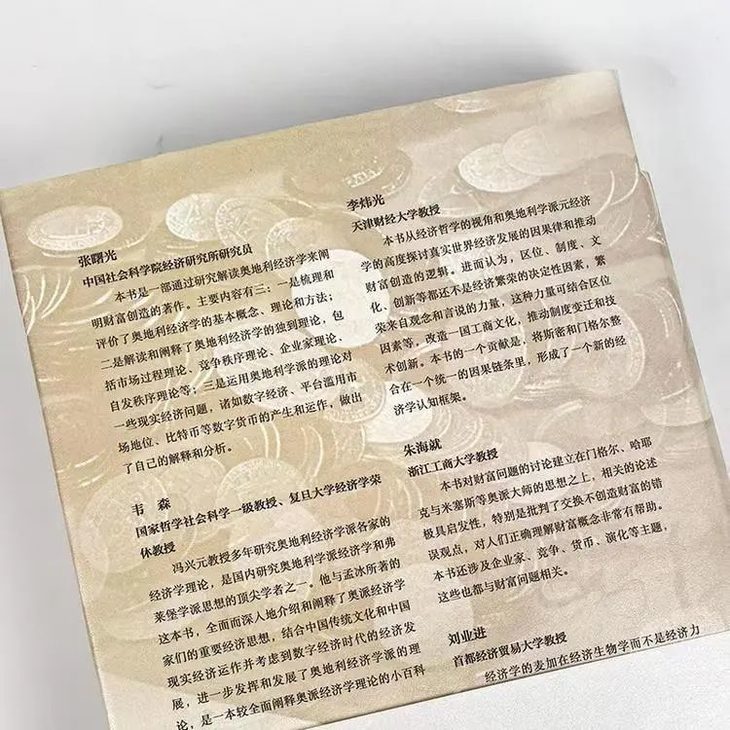 张曙光
中国社会科学院经济研究所研究员
本书是一部通过研究解读奥地利经济学来阐
明财富创造的著作。主要内容有三：一是梳理和
评价了奥地利经济学的基本概念、理论和方法；
二是解读和阐释了奥地利经济学的独到理论，包
括市场过程理论、竞争秩序理论、企业家理论、
自发秩序理论等；三是运用奥地利学派的理论对
一些现实经济问题，诸如数字经济、平台滥用市
场地位、比特币等数字货币的产生和运作，做出
了自己的解释和分析。
韦 森
国家哲学社会科学一级教授、复旦大学经济学荣
休教授
冯兴元教授多年研究奥地利经济学派各家的
经济学理论，是国内研究奥地利学派经济学和弗
莱堡学派思想的顶尖学者之一。他与孟冰所著的
这本书，全面而深入地介绍和阐释了奥派经济学
家们的重要经济思想，结合中国传统文化和中国
现实经济运作并考虑到数字经济时代的经济发
展，进一步发挥和发展了奥地利经济学派的理
论，是一本较全面阐释奥派经济学理论的小百科
李炜光
天津财经大学教授
本书从经济哲学的视角和奥地利学派元经济
学的高度探讨真实世界经济发展的因果律和推动
财富创造的逻辑。进而认为，区位、制度、文
化、创新等都还不是经济繁荣的决定性因素，繁
荣来自观念和言说的力量，这种力量可结合区位
因素等，改造一国工商文化，推动制度变迁和技
术创新。本书的一个贡献，是将斯密和门格尔整
合在一个统一的因果链条里，形成了一个新的经
济学认知框架。
朱海就
浙江工商大学教授
本书对财富问题的讨论建立在门格尔、哈耶
克与米塞斯等奥派大师的思想之上，相关的论述
极具启发性，特别是批判了交换不创造财富的错
误观点，对人们正确理解财富概念非常有帮助。
本书还涉及企业家、竞争、货币、演化等主题，
这些也都与财富问题相关。
刘业进
首都经济贸易大学教授
经济学的麦加在经济生物学而不是经济力